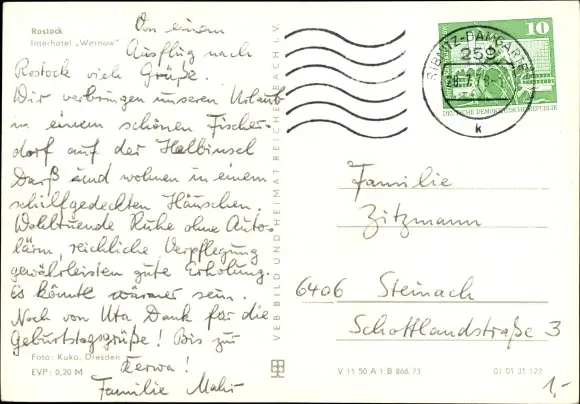 Rostock
Interhotel „Warnow“
Von einem
Ausflug nach
Rostock viele Grüße.
Wir verbringen unseren Urlaub
in einem schönen Fischer-
dorf auf der Halbinsel
Darß und wohnen in einem
schilfgedeckten Häuschen.
Wohltuende Ruhe ohne Autos
lärm, reichliche Verpflegung
gewährleisten gute Erholung.
Es könnte wärmer sein.
Noch von Uta Dank für die
Geburtstagsgrüße! Bis zur
Kerwa!
Familie Mahr
Foto: Kuka, Dresden
EVP: 0,20 M
VEB BILD UND HEIMAT REICHENBACH I. V.
10
DEUTSCHE DEMOKRATISCHE REPUBLIK
RIBNITZ-DAMGARTEN
259
k
Familie
Zitzmann
6406 Steinach
Schottlandstraße 3
V 11 50 A 1 B 866/73
01 01 31 122
1,-